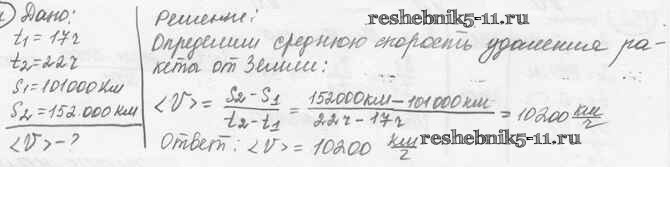 Дано:
t₁ = 17ч
t₂ = 22ч
S₁ = 101000 км
S₂ = 152.000 км
<V> - ?
Решение:
reshebnik5-11.ru
Определим среднюю скорость удаления ра-
кета от Земли:
<V> = (S₂ - S₁)/(t₂ - t₁) = (152000 км - 101000 км)/(22ч - 17ч) = 10200 км/ч
Ответ: <V> = 10200 км/ч
reshebnik5-11.ru